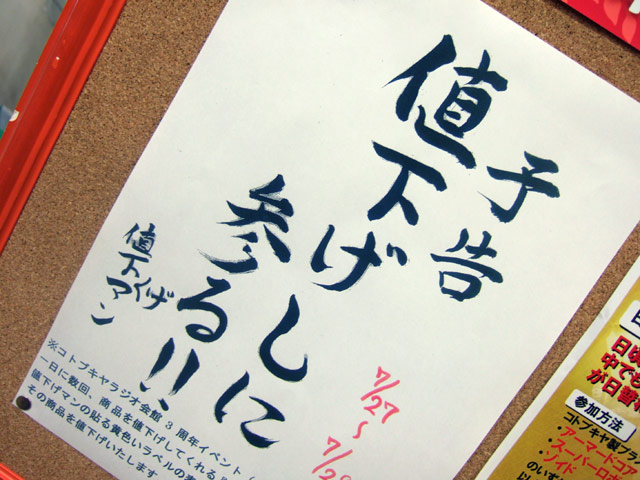 予告
値下げしに
参る!!
値下げマン
7/27〜
※コトブキヤラジオ会館3周年イベント
一日に数回、商品を値下げしてくれる
値下げマンの貼る黄色いラベルの
その商品を値下げいたします
参加方法
コトブキヤ製プラ
・アーマードコア
・スーパーロボ
・ゾイド
のいず